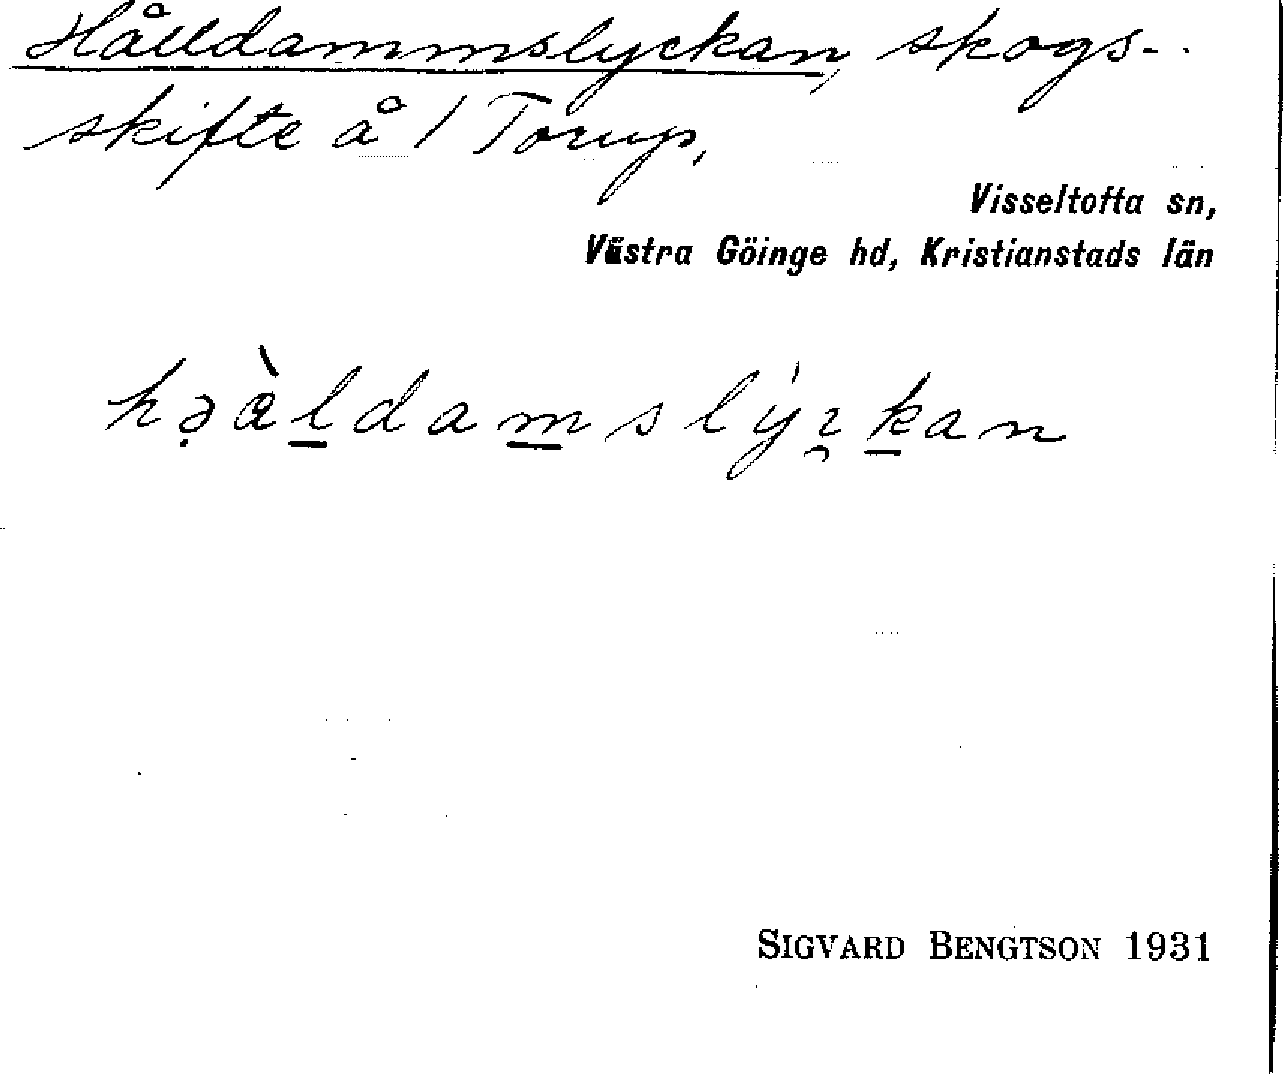 Hålldammslyckan, skogs-
skifte å 1 Torup,
Visseltofta sn,
Västra Göinge hd, Kristianstads län
SIGVARD BENGTSON 1931